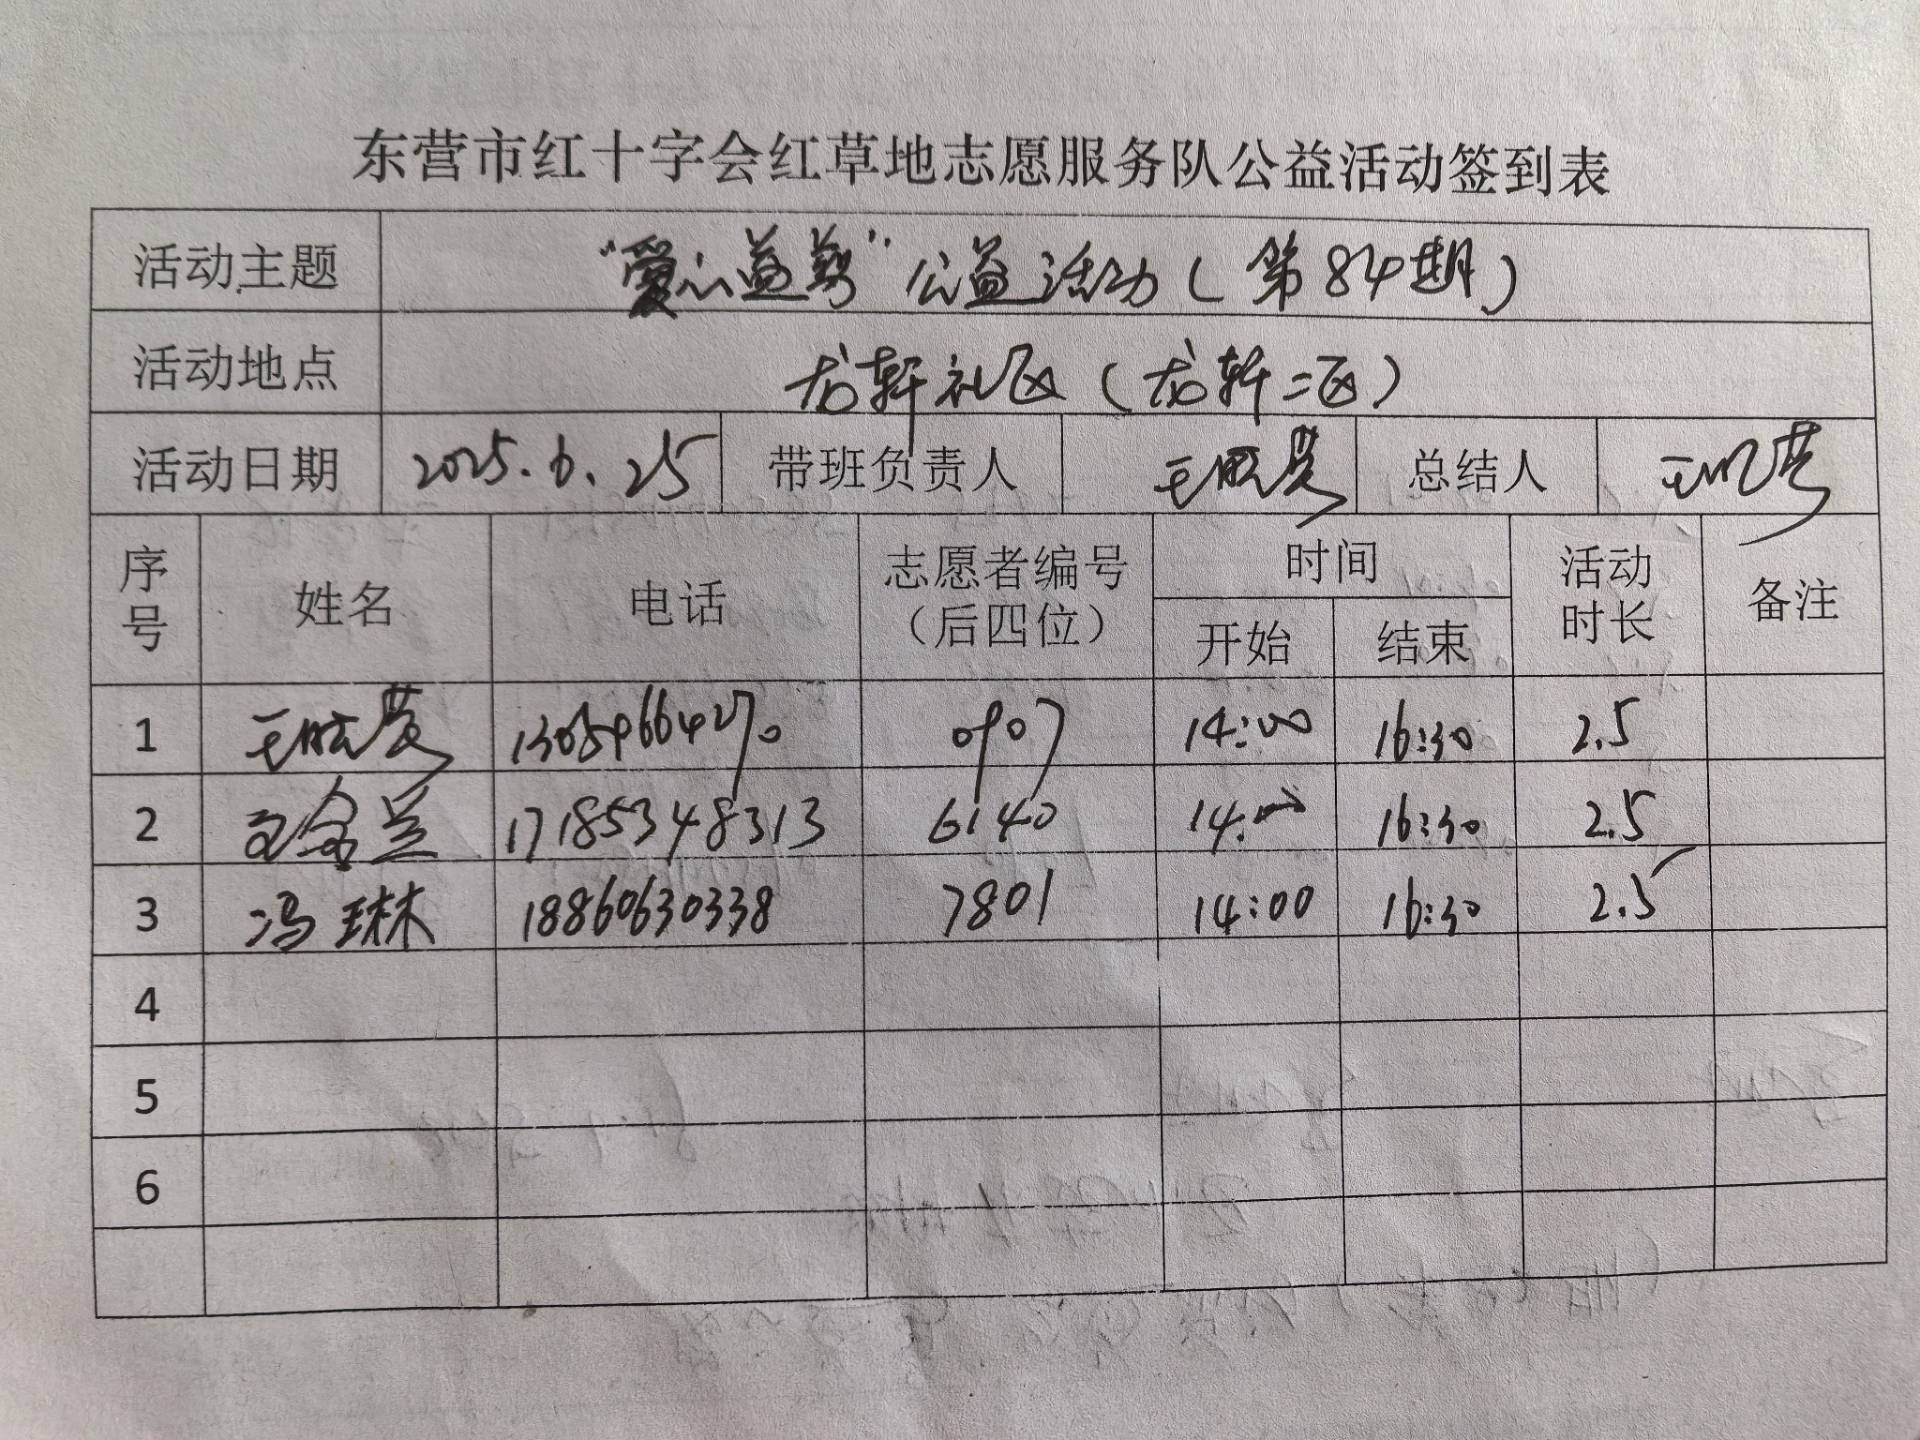 东营市红十字会红草地志愿服务队公益活动签到表
活动主题 “爱心益剪”公益活动（第84期）
活动地点 龙轩社区（龙轩二区）
活动日期 2025.6.25 带班负责人 王 总结人 王
序号 姓名 电话 志愿者编号（后四位） 时间 开始 结束 活动时长 备注
1 王 13054664270 0907 14:00 16:30 2.5
2 17185348313 6140 14:00 16:30 2.5
3 冯琳 18860630338 7801 14:00 16:30 2.5
4
5
6